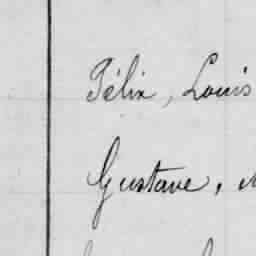 Félix, Louis
Gustave,